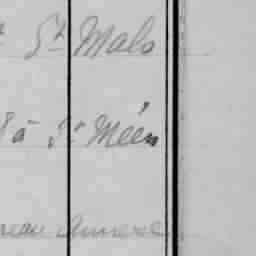 St Malo
à St Méen
Annexe